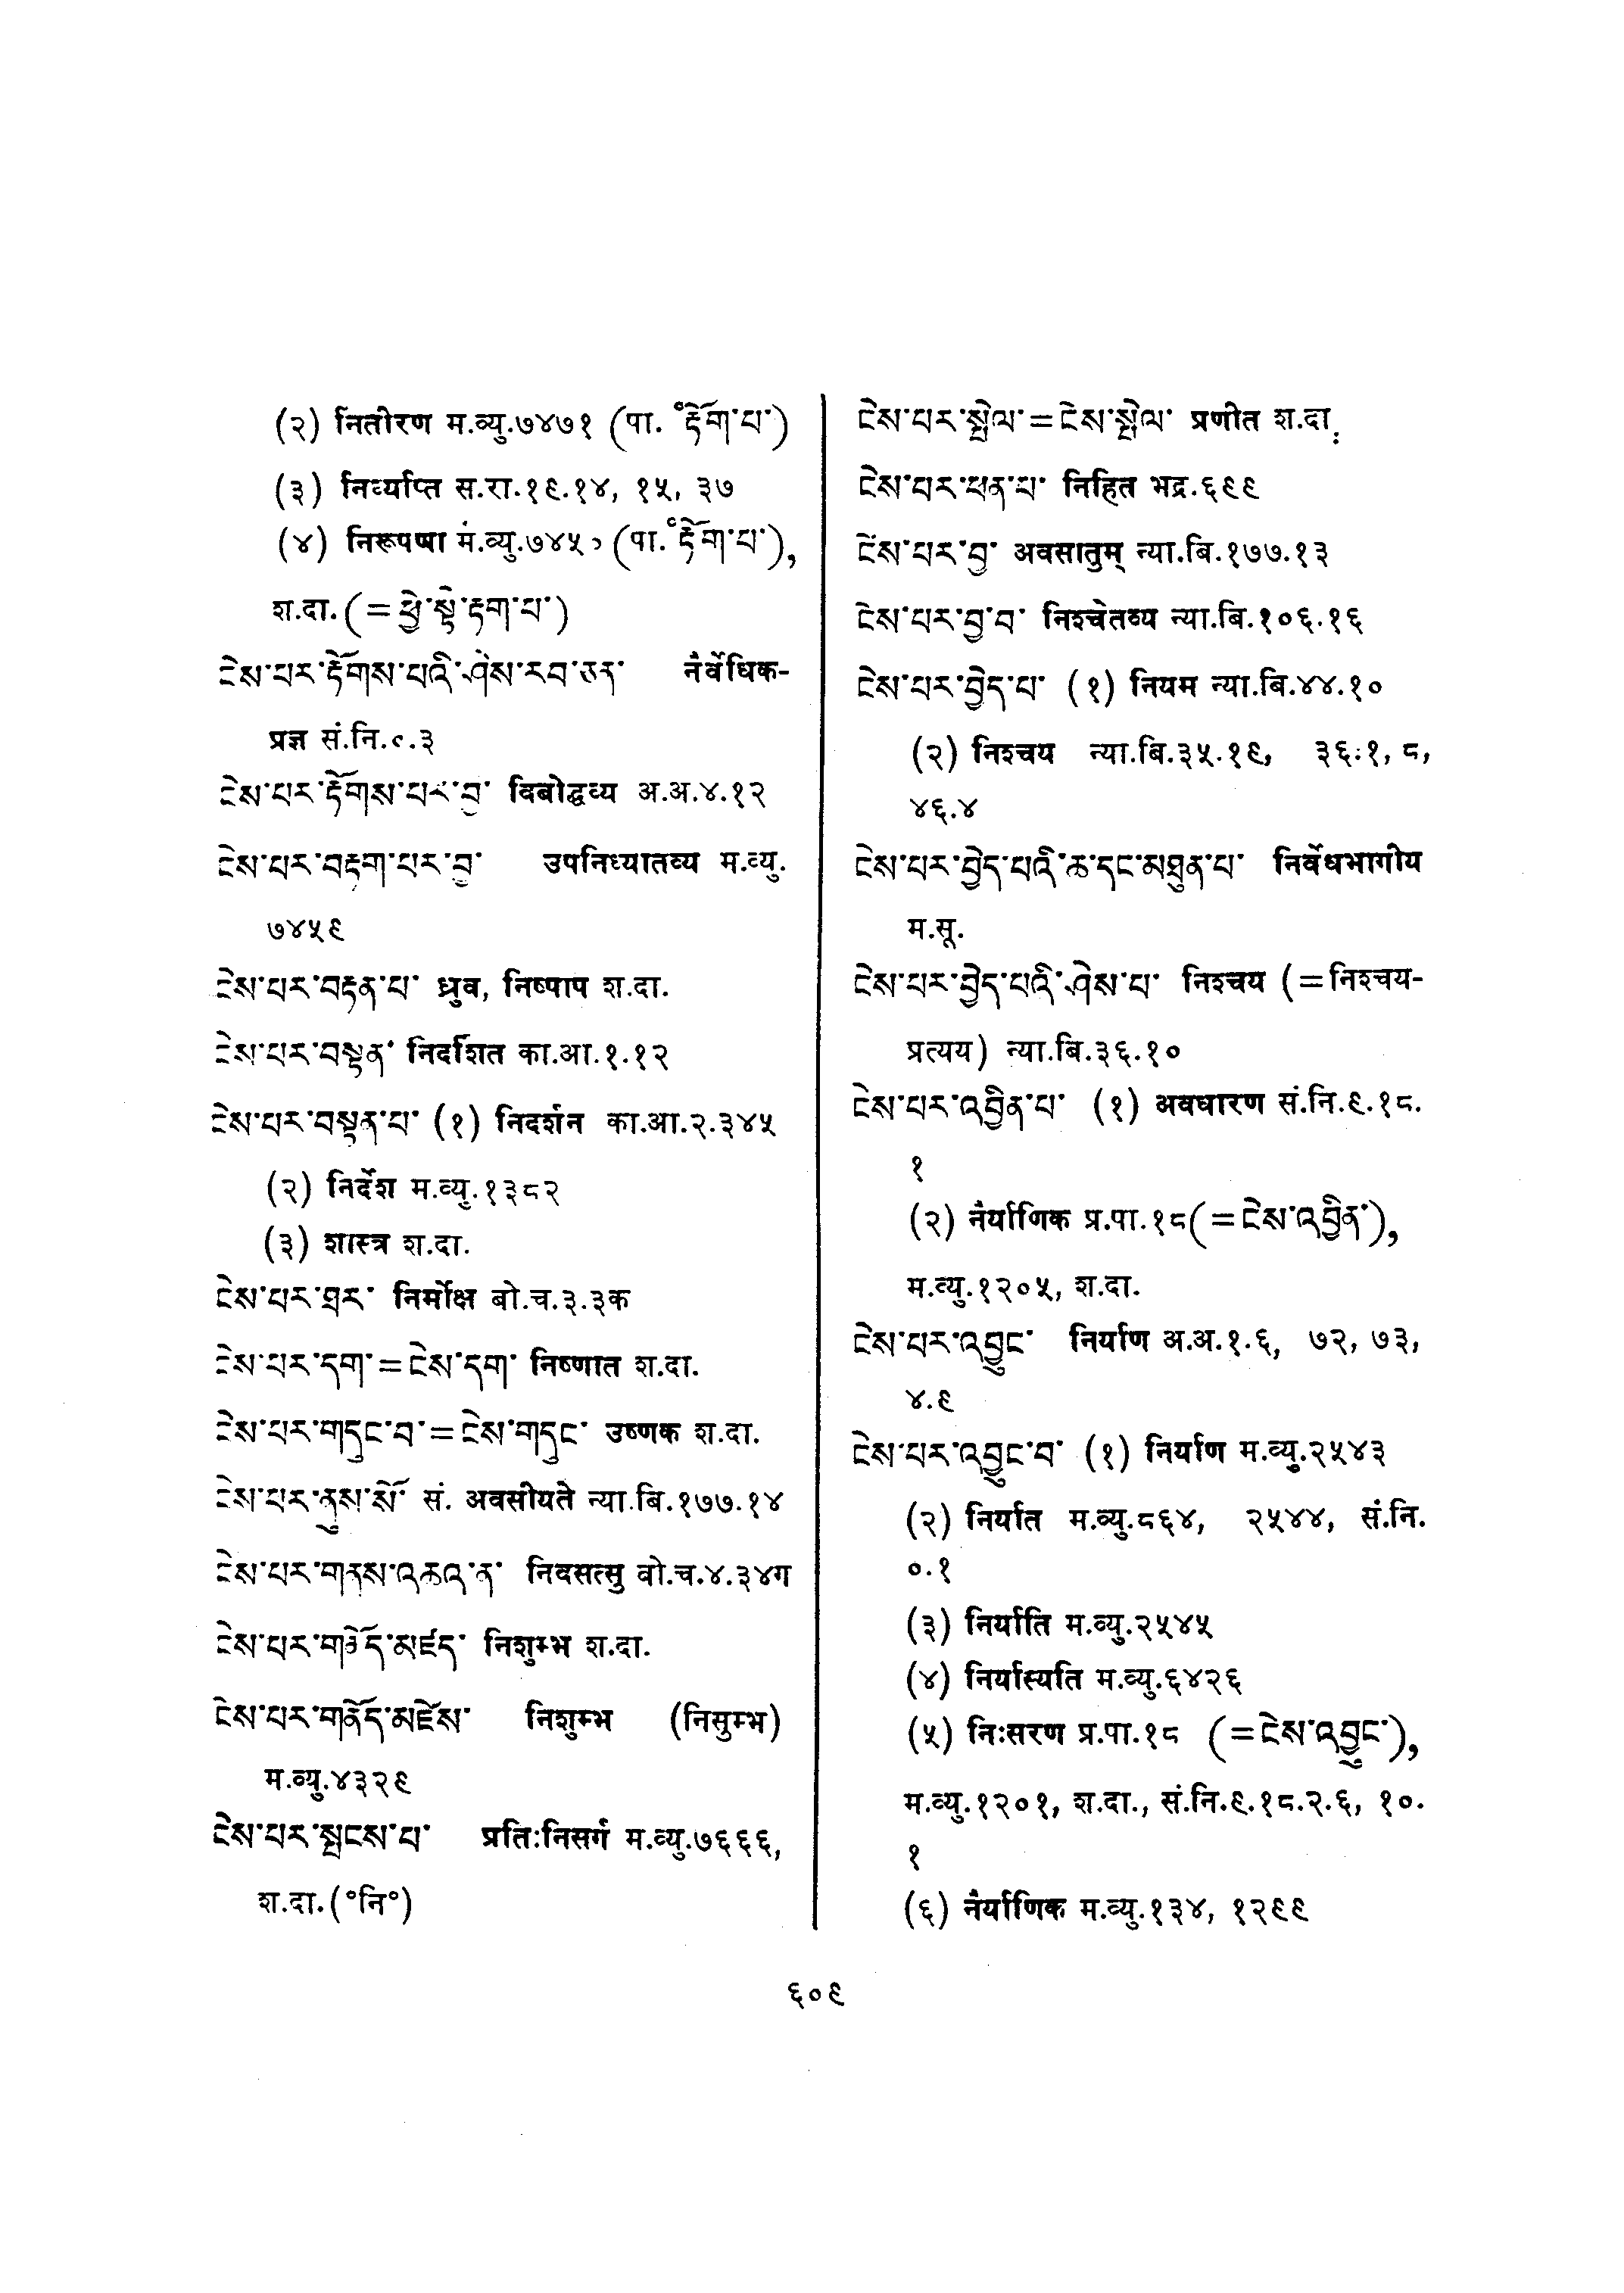 (२) नितीरण म.व्यु.७४७१ (पा. °རྟོག་པ་)
(३) निर्व्याप्ति स.रा.१९.१४, १५, ३७
(४) निरूपणा म.व्यु.७४५ (पा.°རྟོག་པ་),
श.दा.(=ཕྱེ་སྟེ་རྟག་པ་)
ངེས་པར་རྟོགས་པའི་ཤེས་རབ་ཅན་ नैर्वेधिक-
प्रज्ञ सं.नि.९.३
ངེས་པར་རྟོགས་པར་བྱ་ विबोद्धव्य अ.अ.४.१२
ངེས་པར་བརྟག་པར་བྱ་ उपनिध्यातव्य म.व्यु.
७४५९
ངེས་པར་བརྟན་པ་ ध्रुव, निष्पाप श.दा.
ངེས་པར་བསྟན་ निदर्शित का.आ.१.१२
ངེས་པར་བསྟན་པ་ (१) निदर्शन का.आ.२.३४५
(२) निर्देश म.व्यु.१३८२
(३) शास्त्र श.दा.
ངེས་པར་ཐར་ निर्मोक्ष बो.च.३.३क
ངེས་པར་དག་=ངེས་དག་ निष्णात श.दा.
ངེས་པར་གདུང་བ་=ངེས་གདུང་ उष्णक श.दा.
ངེས་པར་ནུས་སོ་ सं. अवसीयते न्या.बि.१७७.१४
ངེས་པར་གནས་འཆའ་ན་ निवसत्सु बो.च.४.३४ग
ངེས་པར་གནོད་མཛད་ निशुम्भ श.दा.
ངེས་པར་གནོད་མཛེས་ निशुम्भ (निसुम्भ)
म.व्यु.४३२९
ངེས་པར་སྤངས་པ་ प्रतिःनिसर्ग म.व्यु.७६६६,
श.दा.(°नि°)
ངེས་པར་སྤེལ་=ངེས་སྤེལ་ प्रणीत श.दा.
ངེས་པར་ཕན་པ་ निहित भद्र.६९९
ངེས་པར་བྱ་ अवसातुम् न्या.बि.१७७.१३
ངེས་པར་བྱ་བ་ निश्चेतव्य न्या.बि.१०६.१६
ངེས་པར་བྱེད་པ་ (१) नियम न्या.बि.४४.१०
(२) निश्चय न्या.बि.३५.१९, ३६.१, ८,
४६.४
ངེས་པར་བྱེད་པའི་ཆ་དང་མཐུན་པ་ निर्वेधभागीय
म.सू.
ངེས་པར་བྱེད་པའི་ཤེས་པ་ निश्चय (=निश्चय-
प्रत्यय) न्या.बि.३६.१०
ངེས་པར་འབྱིན་པ་ (१) अवधारण सं.नि.९.१८.
१
(२) नैर्याणिक प्र.पा.१८(=ངེས་འབྱིན་),
म.व्यु.१२०५, श.दा.
ངེས་པར་འབྱུང་ निर्याण अ.अ.१.६, ७२, ७३,
४.९
ངེས་པར་འབྱུང་བ་ (१) निर्याण म.व्यु.२५४३
(२) निर्यात म.व्यु.८६४, २५४४, सं.नि.
०.१
(३) निर्याति म.व्यु.२५४५
(४) निर्यास्यति म.व्यु.६४२६
(५) निःसरण प्र.पा.१८ (=ངེས་འབྱུང་),
म.व्यु.१२०१, श.दा., सं.नि.९.१८.२.६, १०.
१
(६) नैर्याणिक म.व्यु.१३४, १२९९
६०९